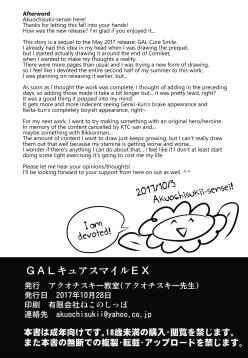 Afterword
Akuochisukii-sensei here!
Thanks for letting this fall into your hands!
How was the new release? I'm glad if you enjoyed it...
This story is a sequel to the May 2017 release: GAL Cure Smile.
I already had this idea in my head when I was drawing the prequel,
but I started actually drawing it around the end of Comiket,
when I wanted to make my thoughts a reality.
There were more pages than usual and I was trying a new form of drawing,
so I feel like I devoted the entire second half of my summer to this work;
I was planning on releasing it earlier, but...
As soon as I thought the work was complete, I thought of adding in the preceding
days, so adding those made it take a bit longer but... it was pretty lewd, right?
It was a good thing it popped into my mind.
It gets more and more indecent seeing Genki-kuro's brave appearance and
Keita-kun's completely broken appearance, right~
For my next work, I want to try making something with an original hero/heroine.
In memory of the content cancelled by KTC-san and...
maybe something with Bikkuriman...
The amount of content I want to draw just keeps growing, but I can't really draw
them out that well because my stamina is getting worse and worse...
I wonder if there's anything I can do about that, I feel like if I don't at least start
doing some light exercising it's going to cost me my life.
Please let me hear your opinions/thoughts!
I'll be looking forward to your support from here on out as well. ^^
2017/10/3
Akuochisukii-sensei!
I am
devoted!
GALキュアスマイルEX
発行 アクオチスキー教室(アクオチスキー先生)
発行日 2017年10月28日
印刷 有限会社ねこのしっぽ
連絡先 akuochisukii@yahoo.co.jp
本書は成年向けです。18歳未満の購入・閲覧を禁じます。
また本書の無断での複製・転載・アップロードを禁じます。